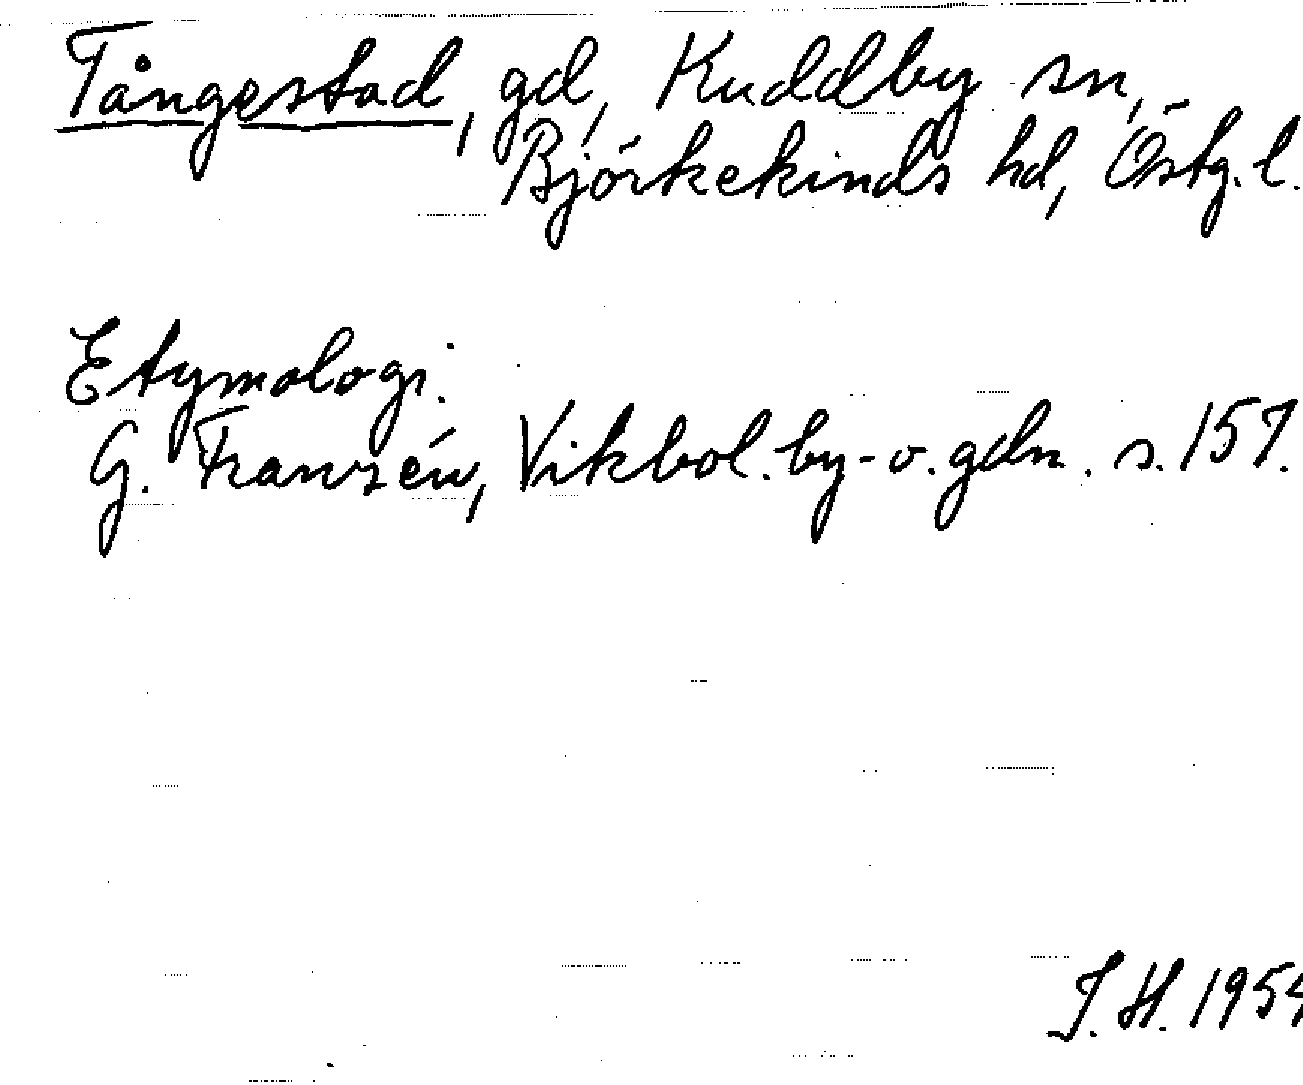 Tångestad, gd, Kuddby sn,
Björkekinds hd, Östg. l.
Etymologi.
G. Franzén, Vikbol. by- o. gdn. s. 157.
J. H. 1954